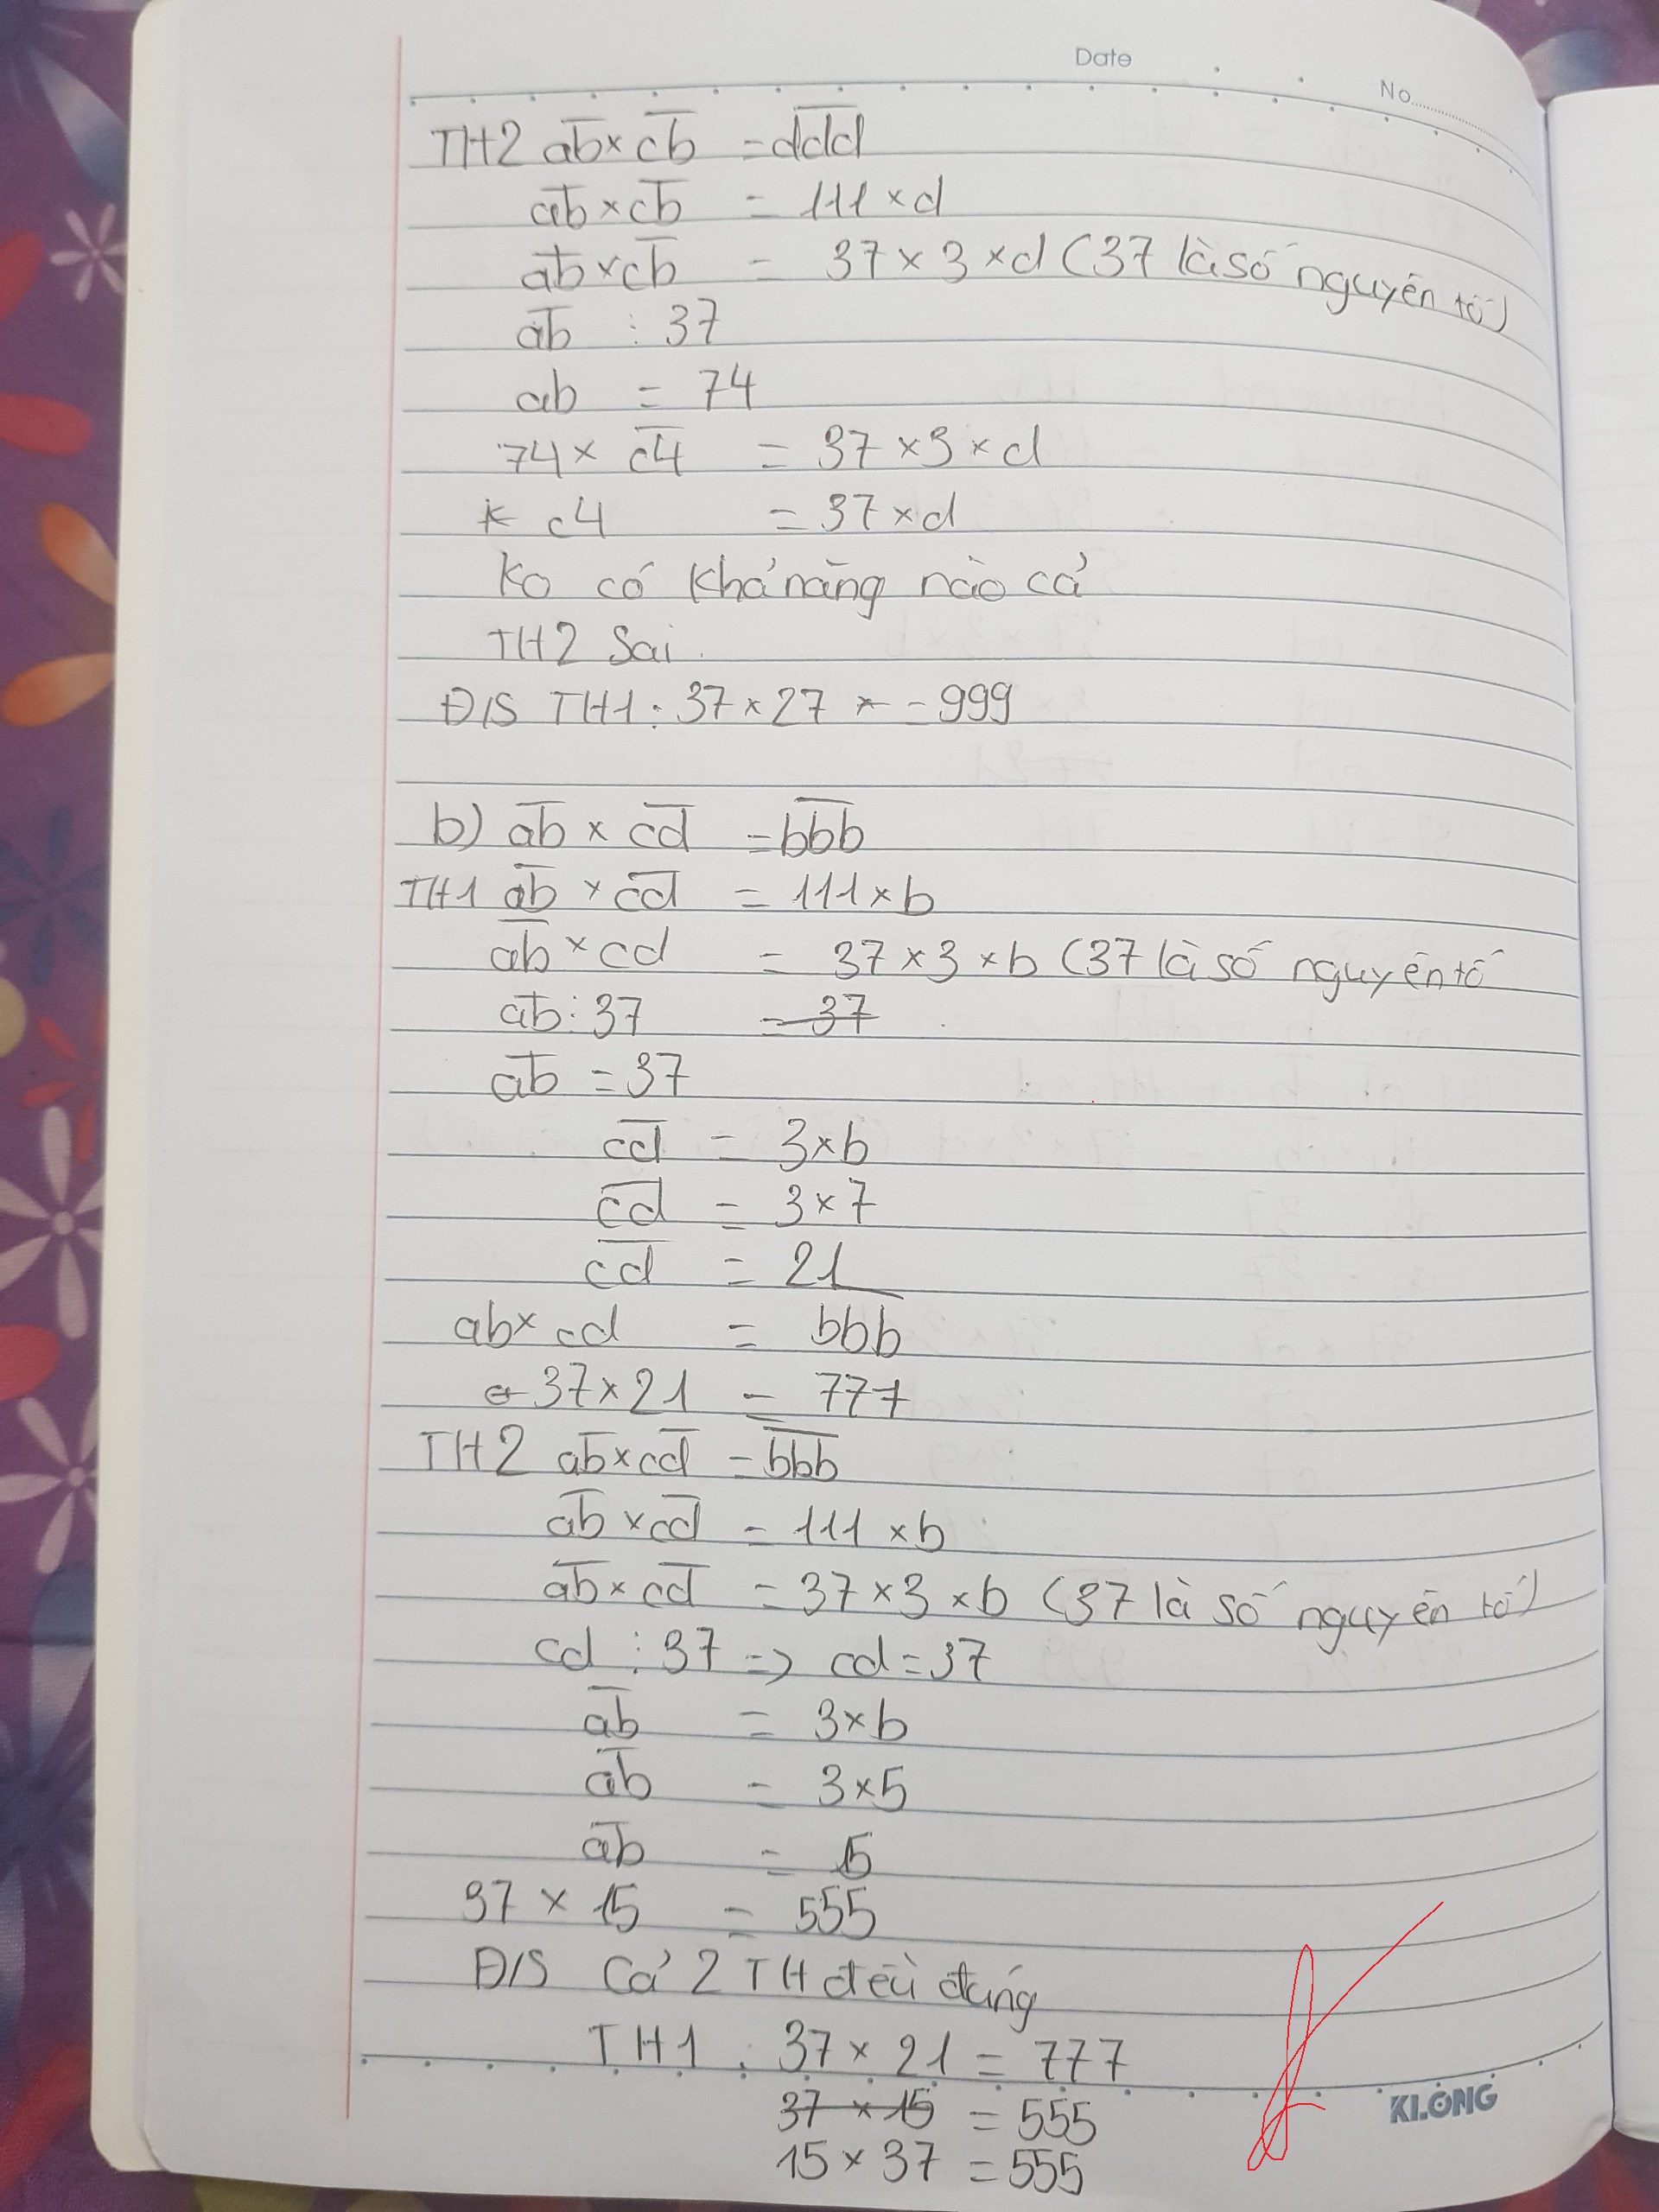 Date
No
TH2 ab × cb = ddd
ab × cb = 111 × d
ab × cb = 37 × 3 × d (37 là số nguyên tố)
ab ⋮ 37
ab = 74
74 × c4 = 37 × 3 × d
c4 = 37 × d
Ko có khả năng nào cả
TH2 Sai.
Đ/S TH1: 37 × 27 = 999
b) ab × cd = bbb
TH1 ab × cd = 111 × b
ab × cd = 37 × 3 × b (37 là số nguyên tố
ab ⋮ 37 = 37
ab = 37
cd = 3 × b
cd = 3 × 7
cd = 21
ab × cd = bbb
37 × 21 = 777
TH2 ab × cd = bbb
ab × cd = 111 × b
ab × cd = 37 × 3 × b (37 là số nguyên tố)
cd ⋮ 37 => cd = 37
ab = 3 × b
ab = 3 × 5
ab = 15
37 × 15 = 555
Đ/S Cả 2 TH đều đúng
TH1: 37 × 21 = 777
37 × 15 = 555
15 × 37 = 555
KLONG